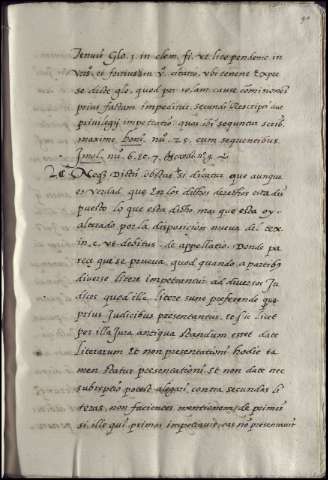 Tenuit Glo. 1. in clem. fi. ut lite pendente in
vers. et fortius in v. citato, ubi tenent expre
se dicte glo. quod per solam causae commissionem
prius factam impeditur secundi Rescripti aut
privilegij impetratio. quod ibi sequuntur scrib.
maxime boni. nu. 25. cum sequentibus
Imol. nu. 6. et 7.
Nec obstat si dicatur que aunque
es verdad que en los dichos derechos esta dis
puesto lo que esta dicho, mas que esta oy
alterado por la disposicion nueva del tex.
in. c. ut debitus. de appellatio. Donde pa
rece que se prueva, quod quando a partibus
diverse litere impetrantur ad diversos Ju
dices quod ille litere sunt preferende que
prius Judicibus presentantur. et sic licet
per illa Jura antiqua standum esset date
literarum et non presentationi hodie ta
men statur presentationi. et non date nec
subreptio potest alegari, contra secundas li
teras, non facientes mentionem, de primis
si ille qui primas impetravit, eas no presentavit